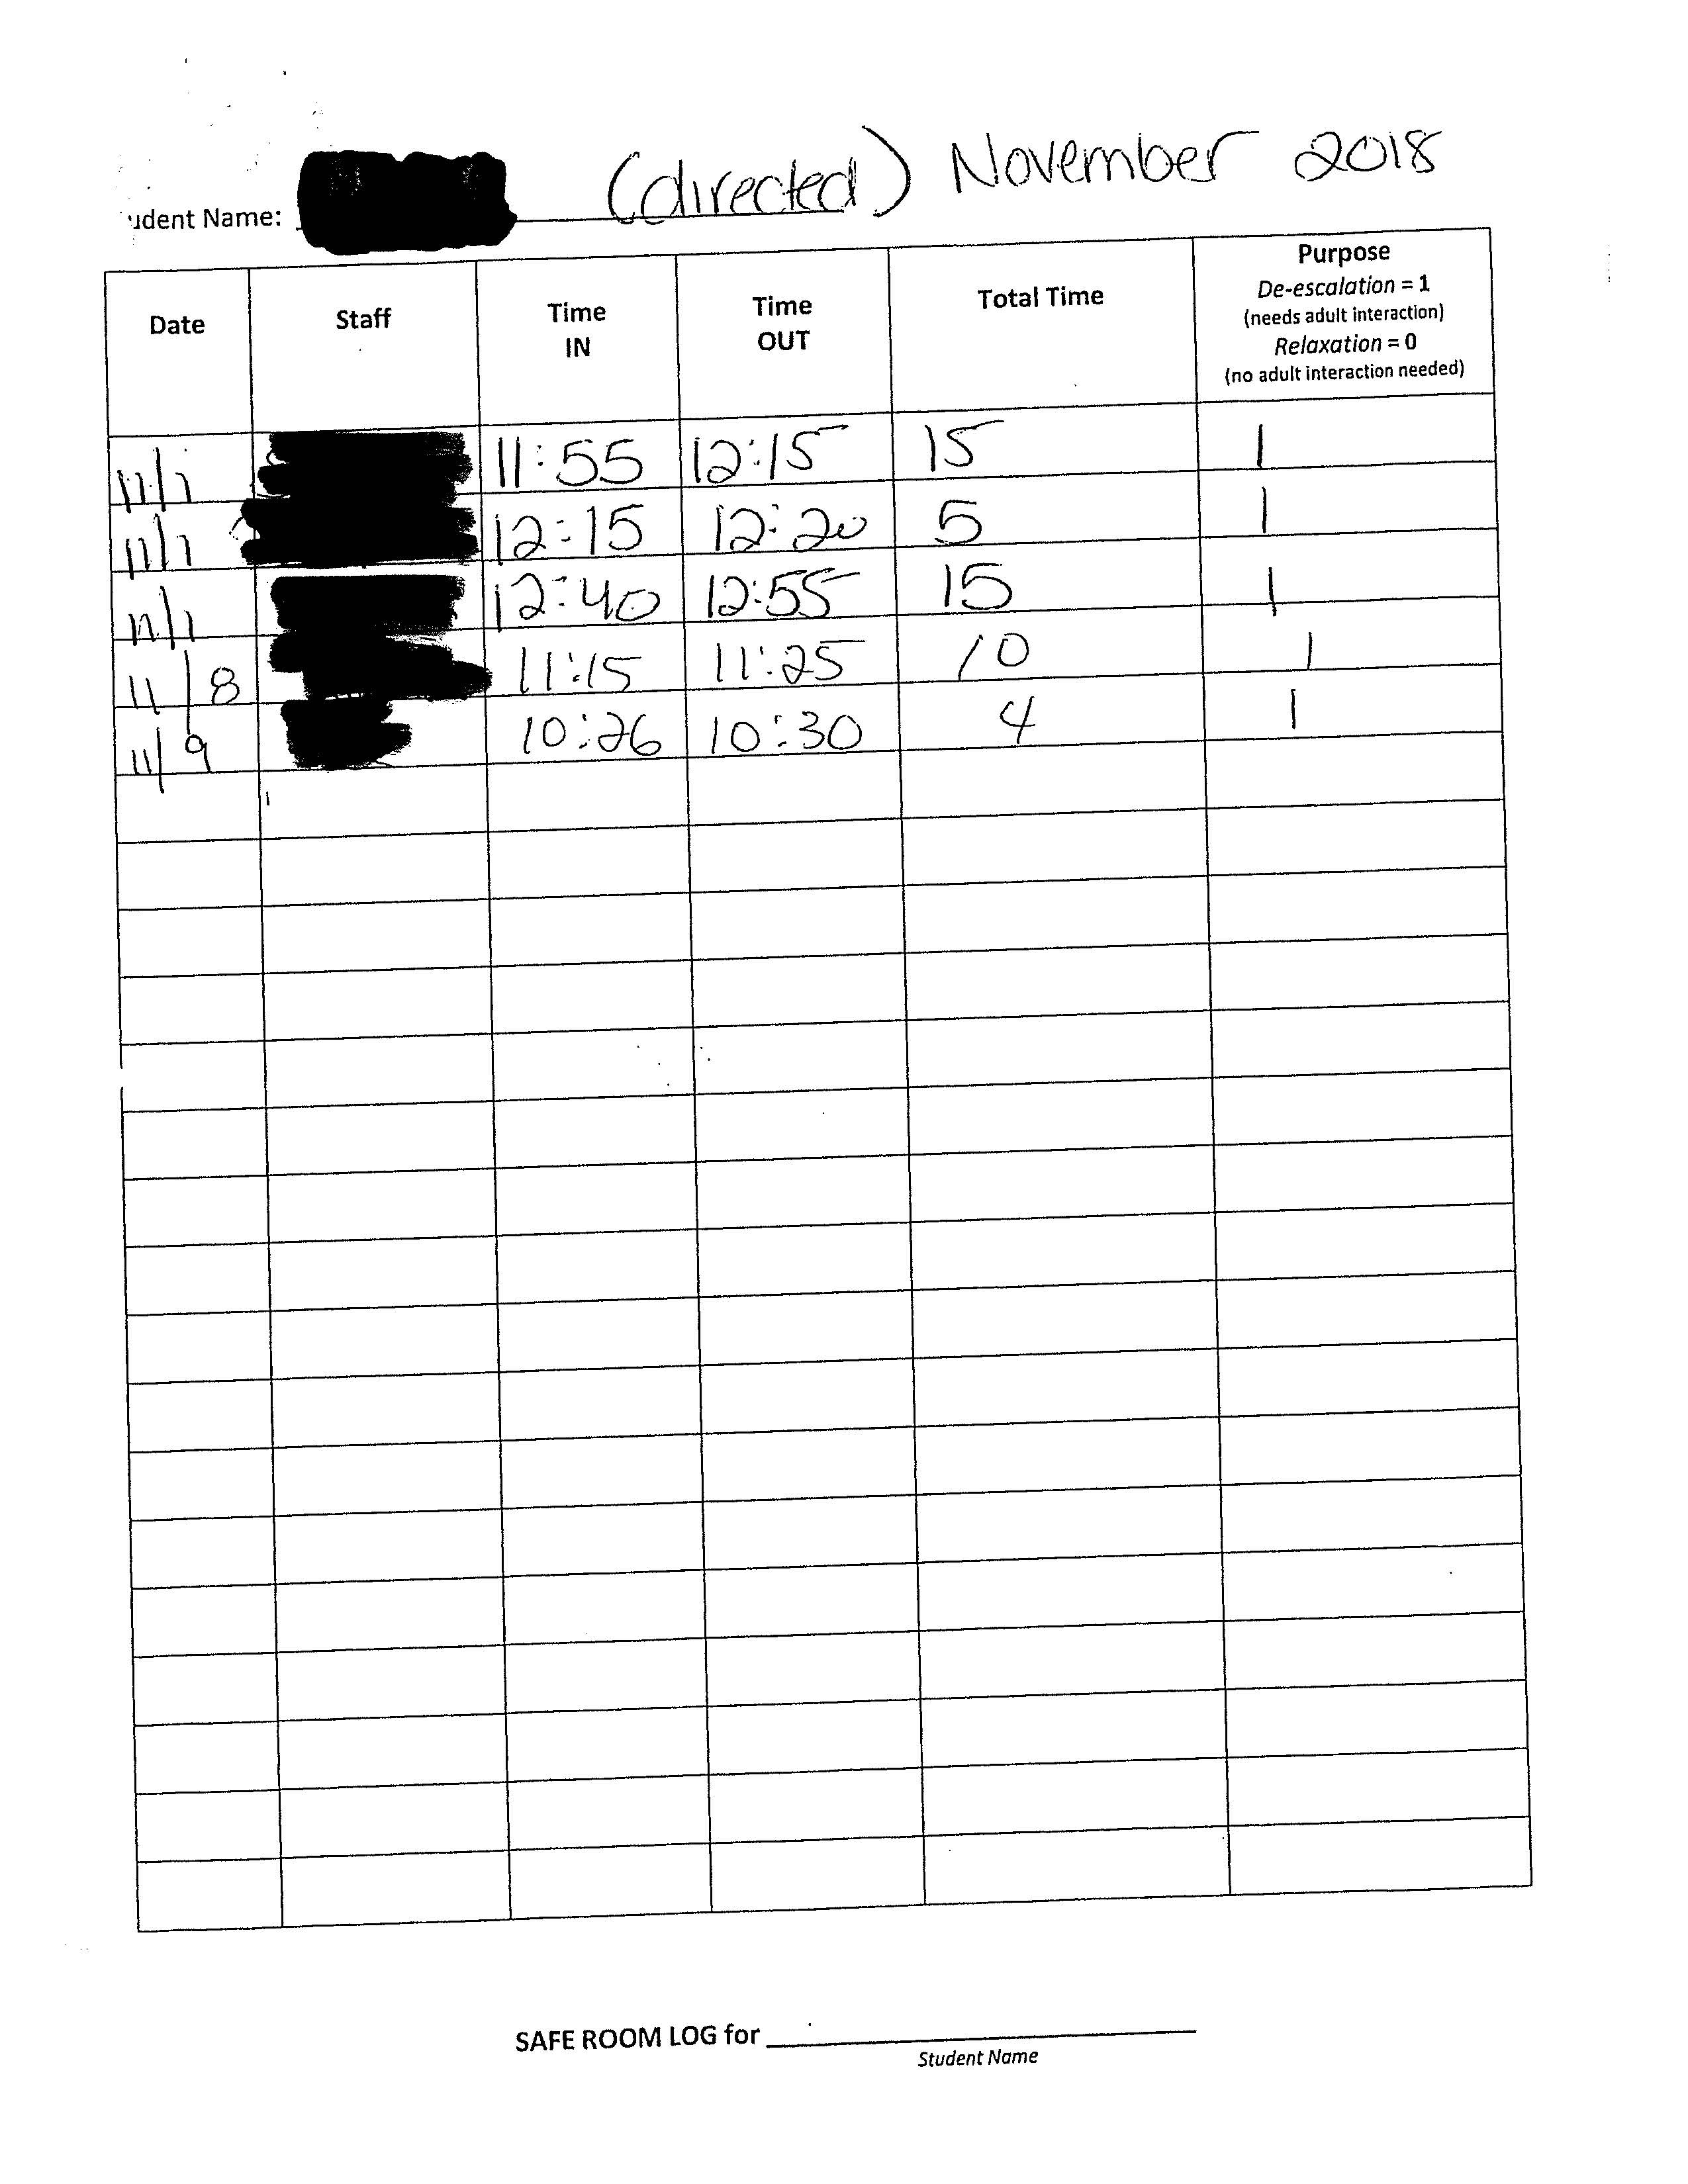 udent Name: (directed) November 2018
Date Staff Time IN Time OUT Total Time Purpose
De-escalation = 1
(needs adult interaction)
Relaxation = 0
(no adult interaction needed)
11/1 11:55 12:15 15 1
11/1 12:15 12:20 5 1
11/1 12:40 12:55 15 1
11/8 11:15 11:25 10 1
11/9 10:26 10:30 4 1
SAFE ROOM LOG for
Student Name